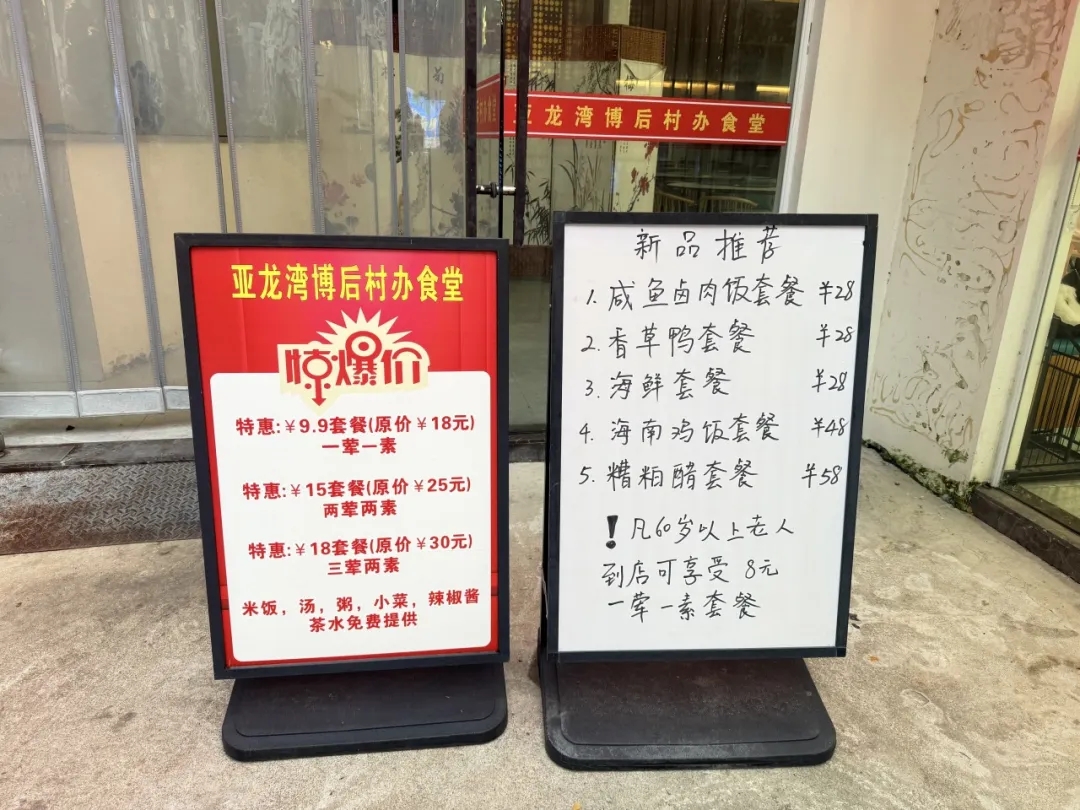 亚龙湾博后村办食堂
亚龙湾博后村办食堂
惊爆价
特惠:￥9.9套餐(原价￥18元)
一荤一素
特惠:￥15套餐(原价￥25元)
两荤两素
特惠:￥18套餐(原价￥30元)
三荤两素
米饭，汤，粥，小菜，辣椒酱
茶水免费提供
新品推荐
1. 咸鱼卤肉饭套餐 ￥28
2. 香草鸭套餐 ￥28
3. 海鲜套餐 ￥28
4. 海南鸡饭套餐 ￥48
5. 糟粕醋套餐 ￥58
! 凡60岁以上老人
到店可享受 8元
一荤一素套餐